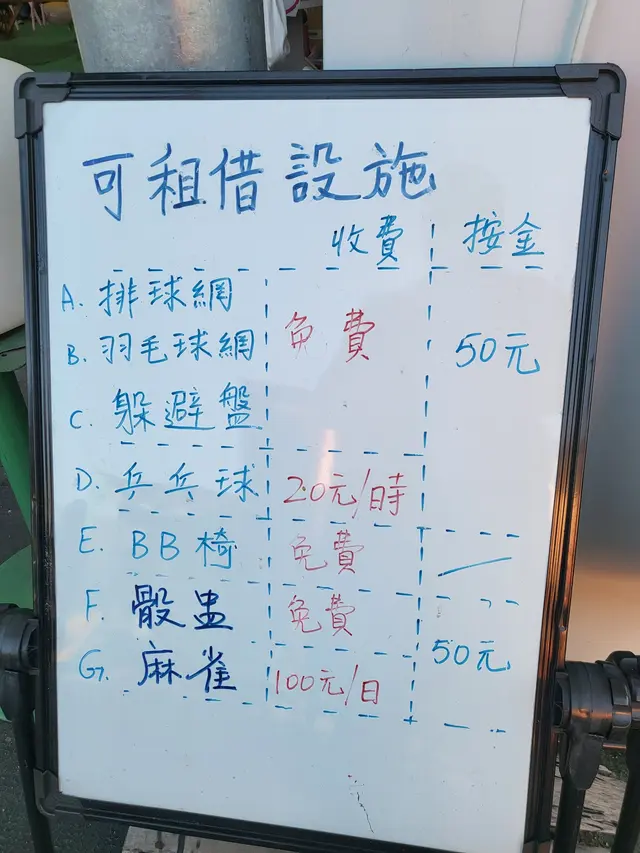 可租借設施
收費 按金
A. 排球網
B. 羽毛球網 免費 50元
C. 躲避盤
D. 乒乓球 20元/時
E. BB椅 免費
F. 骰盅 免費
G. 麻雀 100元/日 50元